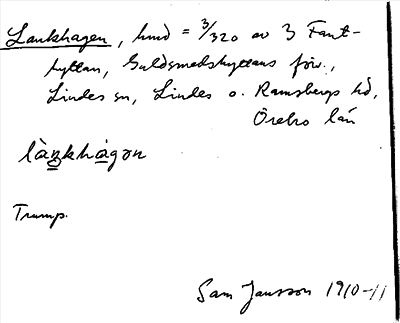 Lankhagen, hmd = 3/320 av 3 Fant-
hyttan, Guldsmedshyttans förs.,
Lindes sn, Lindes o. Ramsbergs hd,
Örebro län
làŋkhágən
Trump.
Sam Jansson 1910-11